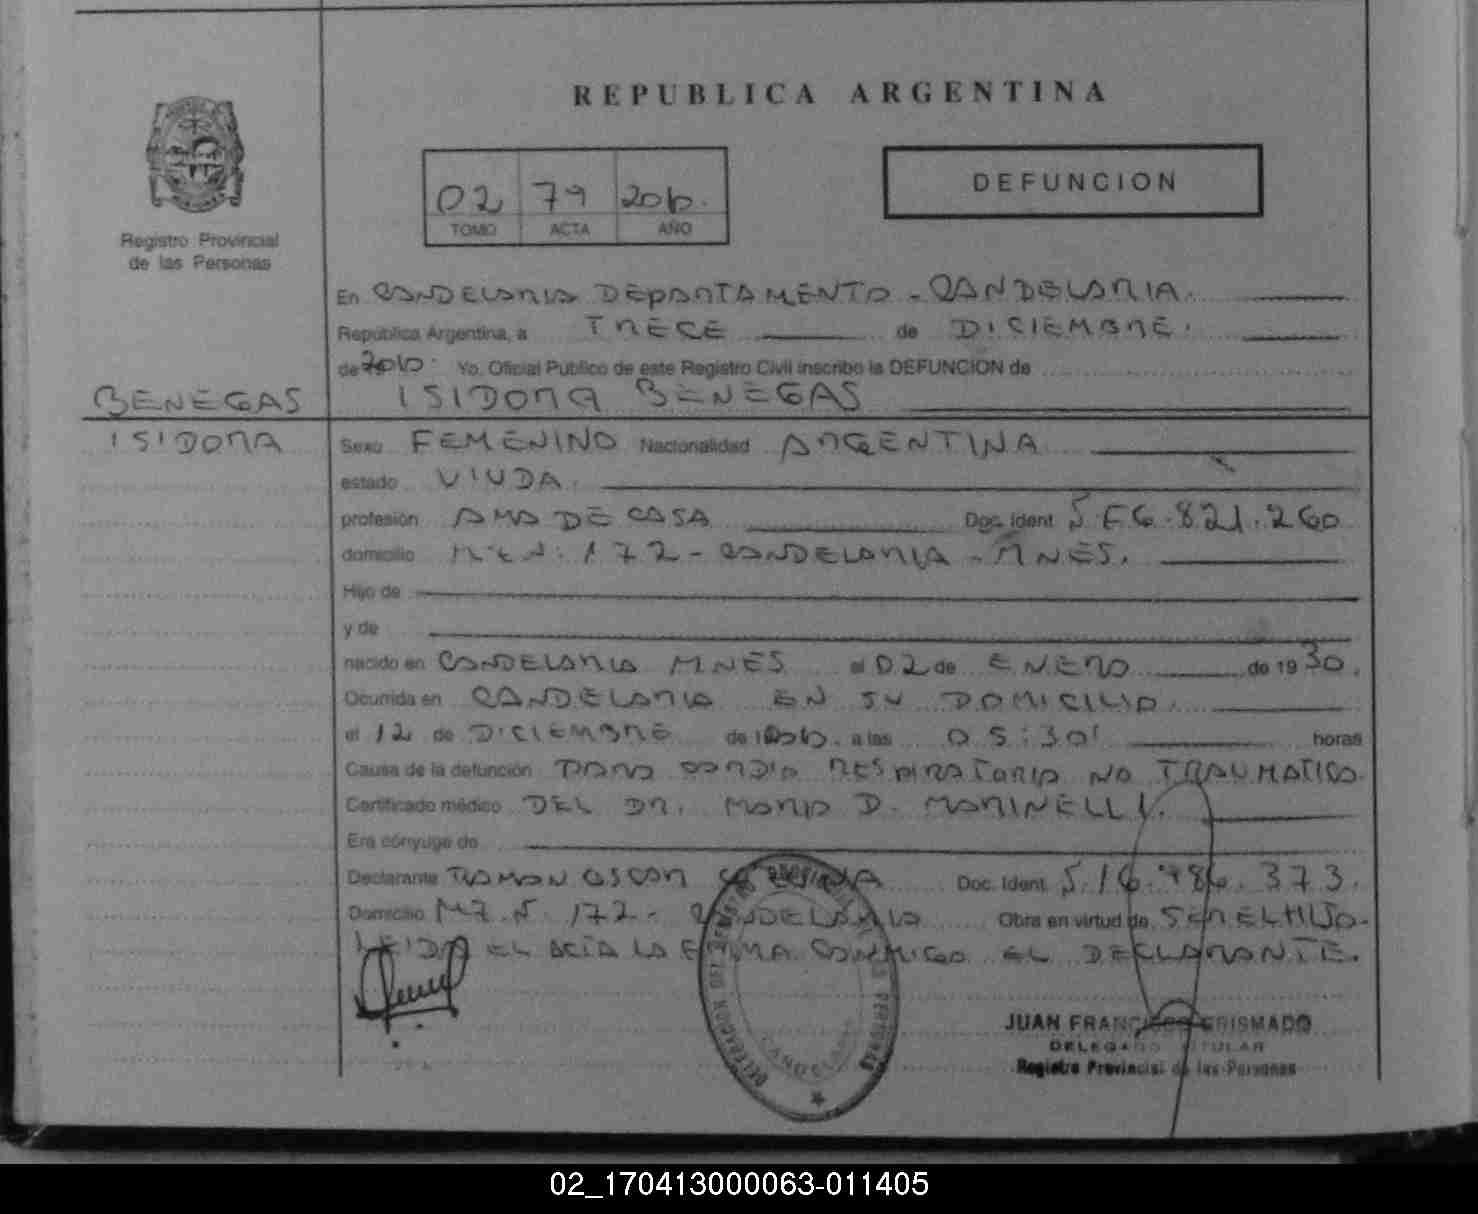 REPUBLICA ARGENTINA
02 79
TOMO ACTA AÑO
DEFUNCION
Registro Provincial
de las Personas
En CANDELARIA DEPARTAMENTO - CANDELARIA.
República Argentina, a TRECE de DICIEMBRE.
de Yo, Oficial Público de este Registro Civil inscribo la DEFUNCION de
BENEGAS ISIDORA BENEGAS
ISIDORA Sexo FEMENINO Nacionalidad ARGENTINA
estado VIUDA.
profesión AMA DE CASA Doc. Ident 5 F6.821.260
domicilio 172 - CANDELARIA - MNES.
Hijo de
y de
nacido en CANDELARIA MNES el 02 de ENERO de 1930.
Ocurrida en CANDELARIA EN SU DOMICILIO.
el 12 de DICIEMBRE de a las 05:30' horas
Causa de la defunción PARO CARDIO RESPIRATORIO NO TRAUMATICO.
Certificado médico DEL DR. MARIO D. MARINELLI.
Era cónyuge de
Declarante RAMON OSCAR Doc. Ident 373.
Domicilio 172 - CANDELARIA Obra en virtud de SER EL HIJO.
LEIDA EL ACTA LA FIRMA CONMIGO EL DECLARANTE.
DELEGACION DEL REGISTRO DE LAS PERSONAS
CANDELARIA
JUAN FRANCISCO GRISMADO
DELEGADO TITULAR
Registro Provincial de las Personas
02_170413000063-011405